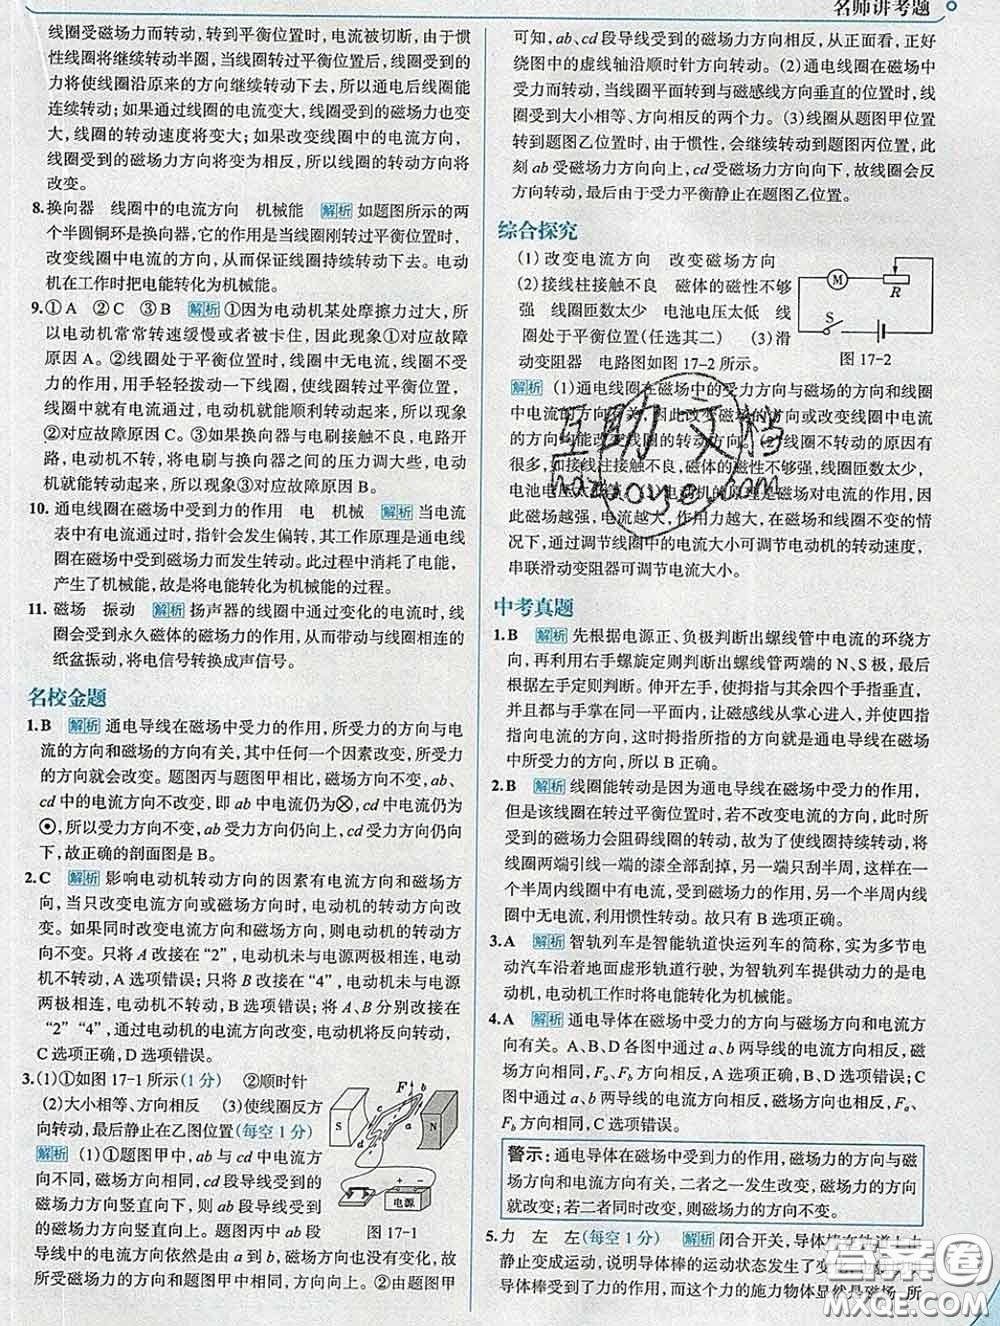 名师讲考题
线圈受磁场力而转动，转到平衡位置时，电流被切断，由于惯
性线圈将继续转动半圈，当线圈转过平衡位置后，线圈受到的
力将使线圈沿原来的方向继续转动下去，所以通电后线圈能
连续转动；如果通过线圈的电流变大，线圈受到的磁场力也变
大，线圈的转动速度将变大；如果改变线圈中的电流方向，
线圈受到的磁场力方向将变为相反，所以线圈的转动方向将
改变。
8.换向器 线圈中的电流方向 机械能 解析 如题图所示的两
个半圆铜环是换向器，它的作用是当线圈刚转过平衡位置时，
改变线圈中电流的方向，从而保证线圈持续转动下去。电动
机在工作时把电能转化为机械能。
9.①A ②C ③B 解析 ①因为电动机某处摩擦力过大，所
以电动机常常转速缓慢或者被卡住，因此现象①对应故障
原因 A。②线圈处于平衡位置时，线圈中无电流，线圈不受
力的作用，用手轻轻拨动一下线圈，使线圈转过平衡位置，
线圈中就有电流通过，电动机就能顺利转动起来，所以现象
②对应故障原因 C。③如果换向器与电刷接触不良，电路开
路，电动机不转，将电刷与换向器之间的压力调大些，电动机
就能转动起来，所以现象③对应故障原因 B。
10.通电线圈在磁场中受力的作用 电 机械 解析 当电流
表中有电流通过时，指针会发生偏转，其工作原理是通电线
圈在磁场中受到磁场力而发生转动。此过程中消耗了电能，
产生了机械能，故是将电能转化为机械能的过程。
11.磁场 振动 解析 扬声器的线圈中通过变化的电流时，线
圈会受到永久磁体的磁场力的作用，从而带动与线圈相连的
纸盆振动，将电信号转换成声信号。
名校金题
1.B 解析 通电导线在磁场中受力的作用，所受力的方向与电
流的方向和磁场的方向有关，其中任何一个因素改变，所受力
的方向就会改变。题图丙与题图甲相比，磁场方向不变，ab、
cd 中的电流方向不改变，即 ab 中电流仍为⊗，cd 中电流仍为
⊙，所以受力方向不变，ab 受力方向仍向上，cd 受力方向仍向
下，故正确的剖面图是 B。
2.C 解析 影响电动机转动方向的因素有电流方向和磁场方
向，当只改变电流方向或磁场方向时，电动机的转动方向改
变。如果同时改变电流方向和磁场方向，则电动机的转动方
向不变。只将 A 改接在“2”，电动机未与电源两极相连，电动
机不转动，A 选项错误；只将 B 改接在“4”，电动机未与电源
两极相连，电动机不转动，B 选项错误；将 A、B 分别改接在
“2”“4”，通过电动机的电流方向改变，电动机将反向转动，
C 选项正确，D 选项错误。
3.(1)①如图 17-1 所示(1 分) ②顺时针
(2)大小相等、方向相反 (3)使线圈反方
向转动，最后静止在乙图位置(每空 1 分)
解析 (1)①题图甲中，ab 与 cd 中电流方
向不同，磁场方向相同，cd 段导线受到的
磁场力方向竖直向下，则 ab 段导线受到
的磁场力方向竖直向上。题图丙中 ab 段
导线中的电流方向依然是由 a 到 b，磁场方向也没有变化，故
所受磁场力的方向与题图甲中相同，竖直向上。②由题图甲
F b
c
S
N
d
a
- +
电源
图 17-1
可知，ab、cd 段导线受到的磁场力方向相反，从正面看，正好
绕图中的虚线轴沿顺时针方向转动。(2)通电线圈在磁场中
受力而转动，当线圈平面转到与磁感线方向垂直的位置时，线
圈受到大小相等、方向相反的两个力。(3)线圈从题图甲位置
转到题图乙位置时，由于惯性，会继续转动到题图丙位置，此
刻 ab 受磁场力方向向上，cd 受磁场力方向向下，故线圈会反
方向转动，最后由于受力平衡静止在题图乙位置。
综合探究
(1)改变电流方向 改变磁场方向
(2)接线柱接触不良 磁体的磁性不够
强 线圈匝数太少 电池电压太低 线
圈处于平衡位置(任选其二) (3)滑
动变阻器 电路图如图 17-2 所示。
M
R
S
图 17-2
解析 (1)通电线圈在磁场中的受力方向与磁场的方向和线圈
中电流的方向有关，因此改变磁场的方向或改变线圈中电流
的方向均能改变线圈的转动方向。(2)线圈不转动的原因有
很多，如接线柱接触不良，磁体的磁性不够强，线圈匝数太少，
电池电压太低等。(3)电动机的原理是磁场对电流的作用，因
此磁场越强，电流越大，作用力越大，在磁场和线圈不变的情
况下，通过调节线圈中的电流大小可调节电动机的转动速度，
串联滑动变阻器可调节电流大小。
中考真题
1.B 解析 先根据电源正、负极判断出螺线管中电流的环绕方
向，再利用右手螺旋定则判断出螺线管两端的 N、S 极，最后
根据左手定则判断。伸开左手，使拇指与其余四个手指垂直，
并且都与手掌在同一平面内，让磁感线从掌心进入，并使四指
指向电流的方向，这时拇指所指的方向就是通电导线在磁场
中所受力的方向，所以 B 正确。
2.B 解析 线圈能转动是因为通电导线在磁场中受力的作用，
但是该线圈在转过平衡位置时，若不改变电流的方向，此时所
受到的磁场力会阻碍线圈的转动，故为了使线圈持续转动，将
线圈两端引线一端的漆全部刮掉，另一端只刮半周，这样在一
个半周内线圈中有电流，受到磁场力的作用，另一个半周内线
圈中无电流，利用惯性转动。故只有 B 选项正确。
3.A 解析 智轨列车是智能轨道快运列车的简称，实为多节电
动汽车沿着地面虚形轨道行驶，为智轨列车提供动力的是电
动机，电动机工作时将电能转化为机械能。
4.A 解析 通电导体在磁场中受力的方向与磁场方向和电流方
向有关。A、B、D 各图中通过 a、b 两导线的电流方向相反，磁
场方向相同，Fa、Fb 方向相反，A 选项正确，B、D 选项错误；C
图中通过 a、b 两导线的电流方向相反，磁场方向也相反，Fa、
Fb 方向相同，C 选项错误。
警示：通电导体在磁场中受到力的作用，磁场力的方向与磁
场方向和电流方向有关，二者之一发生改变，磁场力的方向
就改变；若二者同时改变，则磁场力的方向不变。
5.力 左 左(每空 1 分) 解析 闭合开关，导体棒在轨道上由
静止变成运动，说明导体棒的运动状态发生了变
导体棒受到了力的作用，而这个力的施力物体显然是磁场，所
互助文档
hazuoye.com
答案卷
MXQE.COM